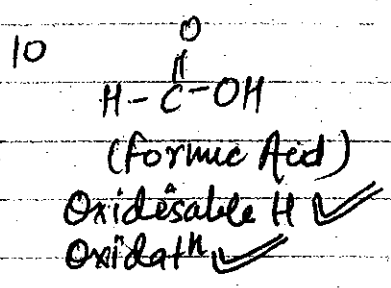 10
O
||
H-C-OH
(Formic Acid)
Oxidisable H ✓
Oxidatⁿ ✓